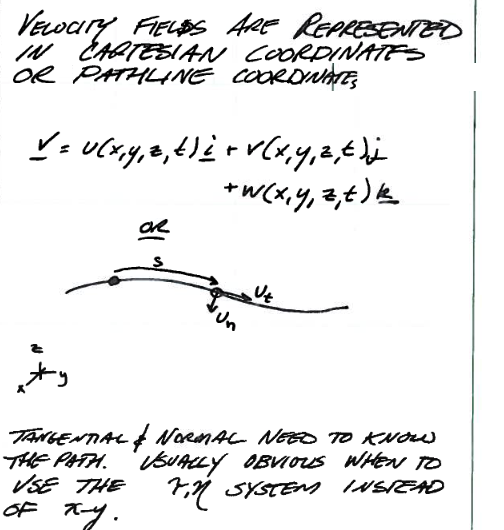 VELOCITY FIELDS ARE REPRESENTED
IN CARTESIAN COORDINATES
OR PATHLINE COORDINATES
V = u(x,y,z,t) i + v(x,y,z,t) j
+ w(x,y,z,t) k
OR
s
U_t
U_n
z
x y
TANGENTIAL & NORMAL NEED TO KNOW
THE PATH. USUALLY OBVIOUS WHEN TO
USE THE r,η SYSTEM INSTEAD
OF x-y.